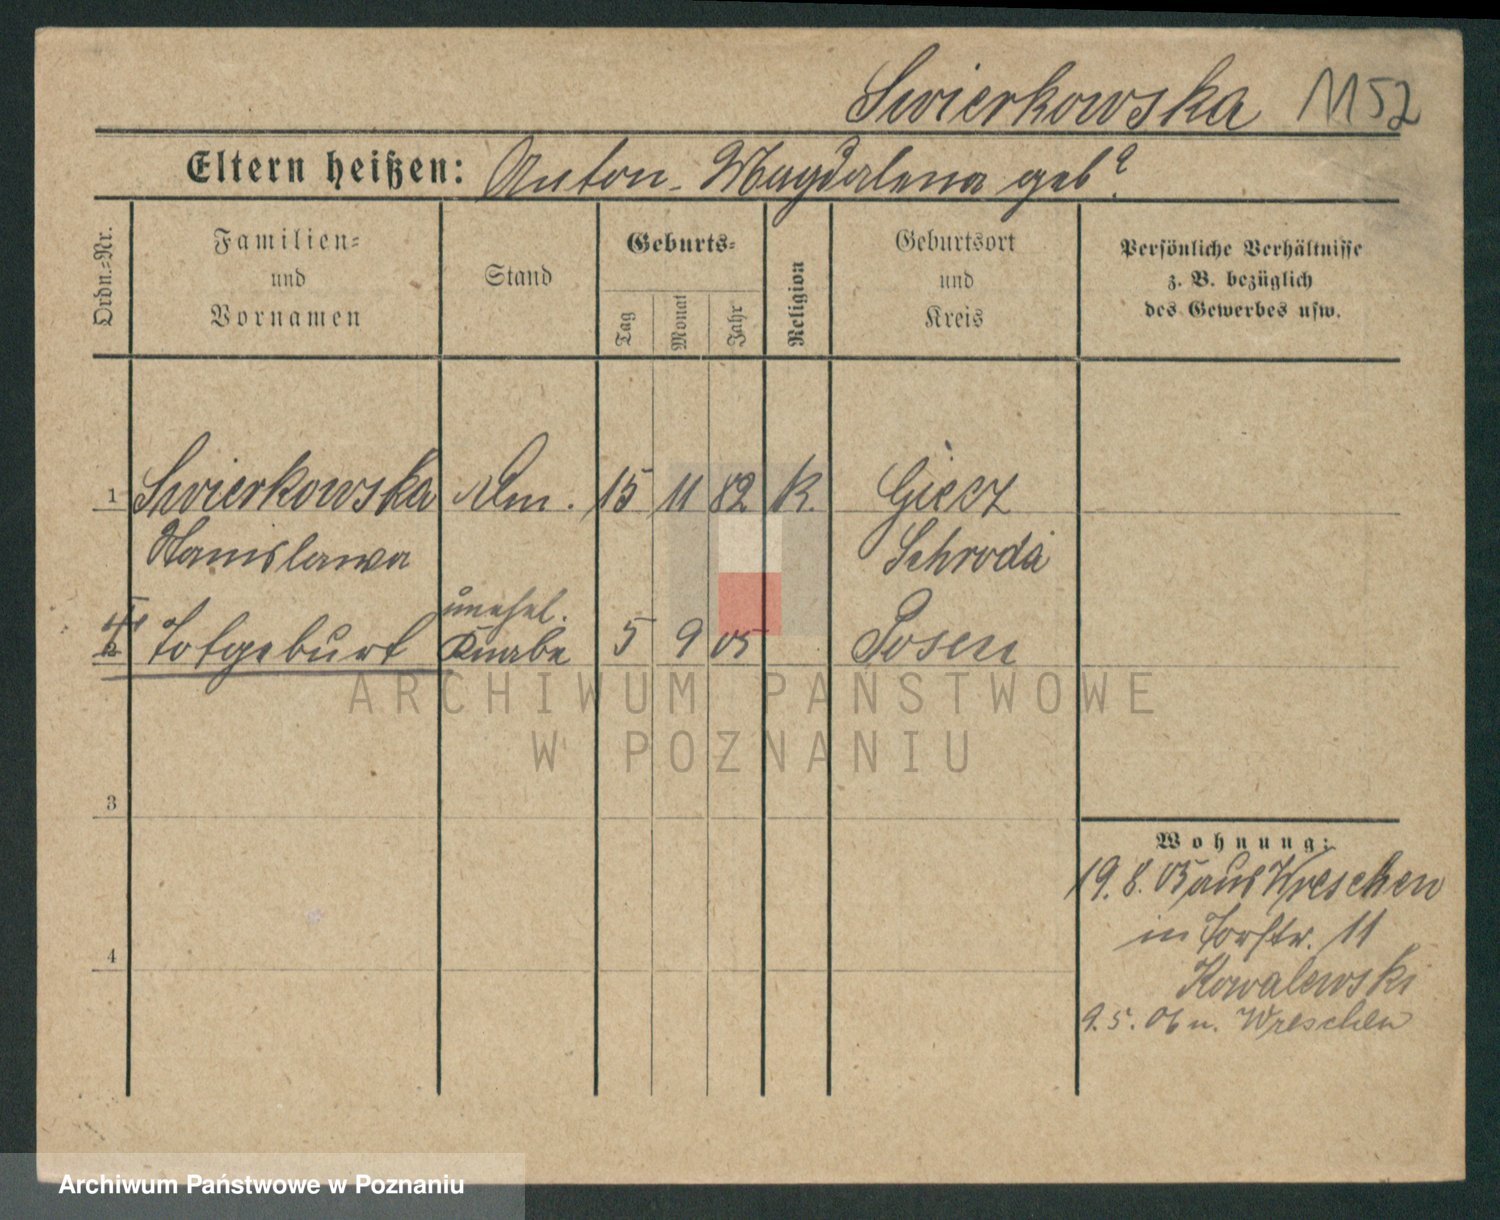 Swierkowska 1152
Eltern heißen: Anton - Magdalena geb?
Ordn.=Nr.
Familien=
und
Vornamen
Stand
Geburts=
Tag
Monat
Jahr
Religion
Geburtsort
und
Kreis
Persönliche Verhältnisse
z. B. bezüglich
des Gewerbes usw.
1 Swierkowska 15 11 82 K. Giecz
Stanislawa Schroda
unehel.
2 Totgeburt Knabe 5 9 05 Posen
ARCHIWUM PAŃSTWOWE
W POZNANIU
3
Wohnung:
19.8.05 aus Wreschen
in Torstr. 11
4
Kowalewski
9.5.06 n. Wreschen
Archiwum Państwowe w Poznaniu